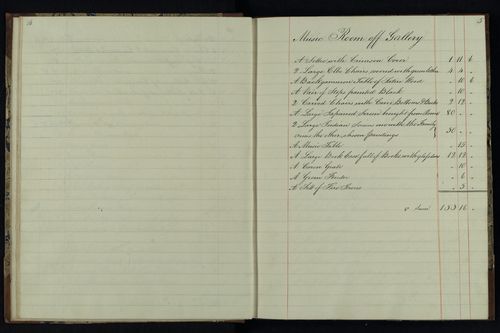 5
Music Room off Gallery
A Settee with Crimson Cover 1 11 6
2 Large Elbo Chairs covered with 4 4 "
A Backgammon Table of Satin Wood " 10 6
A Pair of Steps painted Black " 10 "
2 Carved Chairs with Cane Bottoms & Backs 2 12 "
A Large Japaned Screen brought from 80 " "
2 Large Indian one with the Family
ones the other chosen paintings 30 " "
A Music Table " 15 "
A Large Book Case full of Books with 12 12 "
A Green Grate " 10 "
A Green Fender " 6 "
A Set of Fire Irons " 5 "
133 16 "